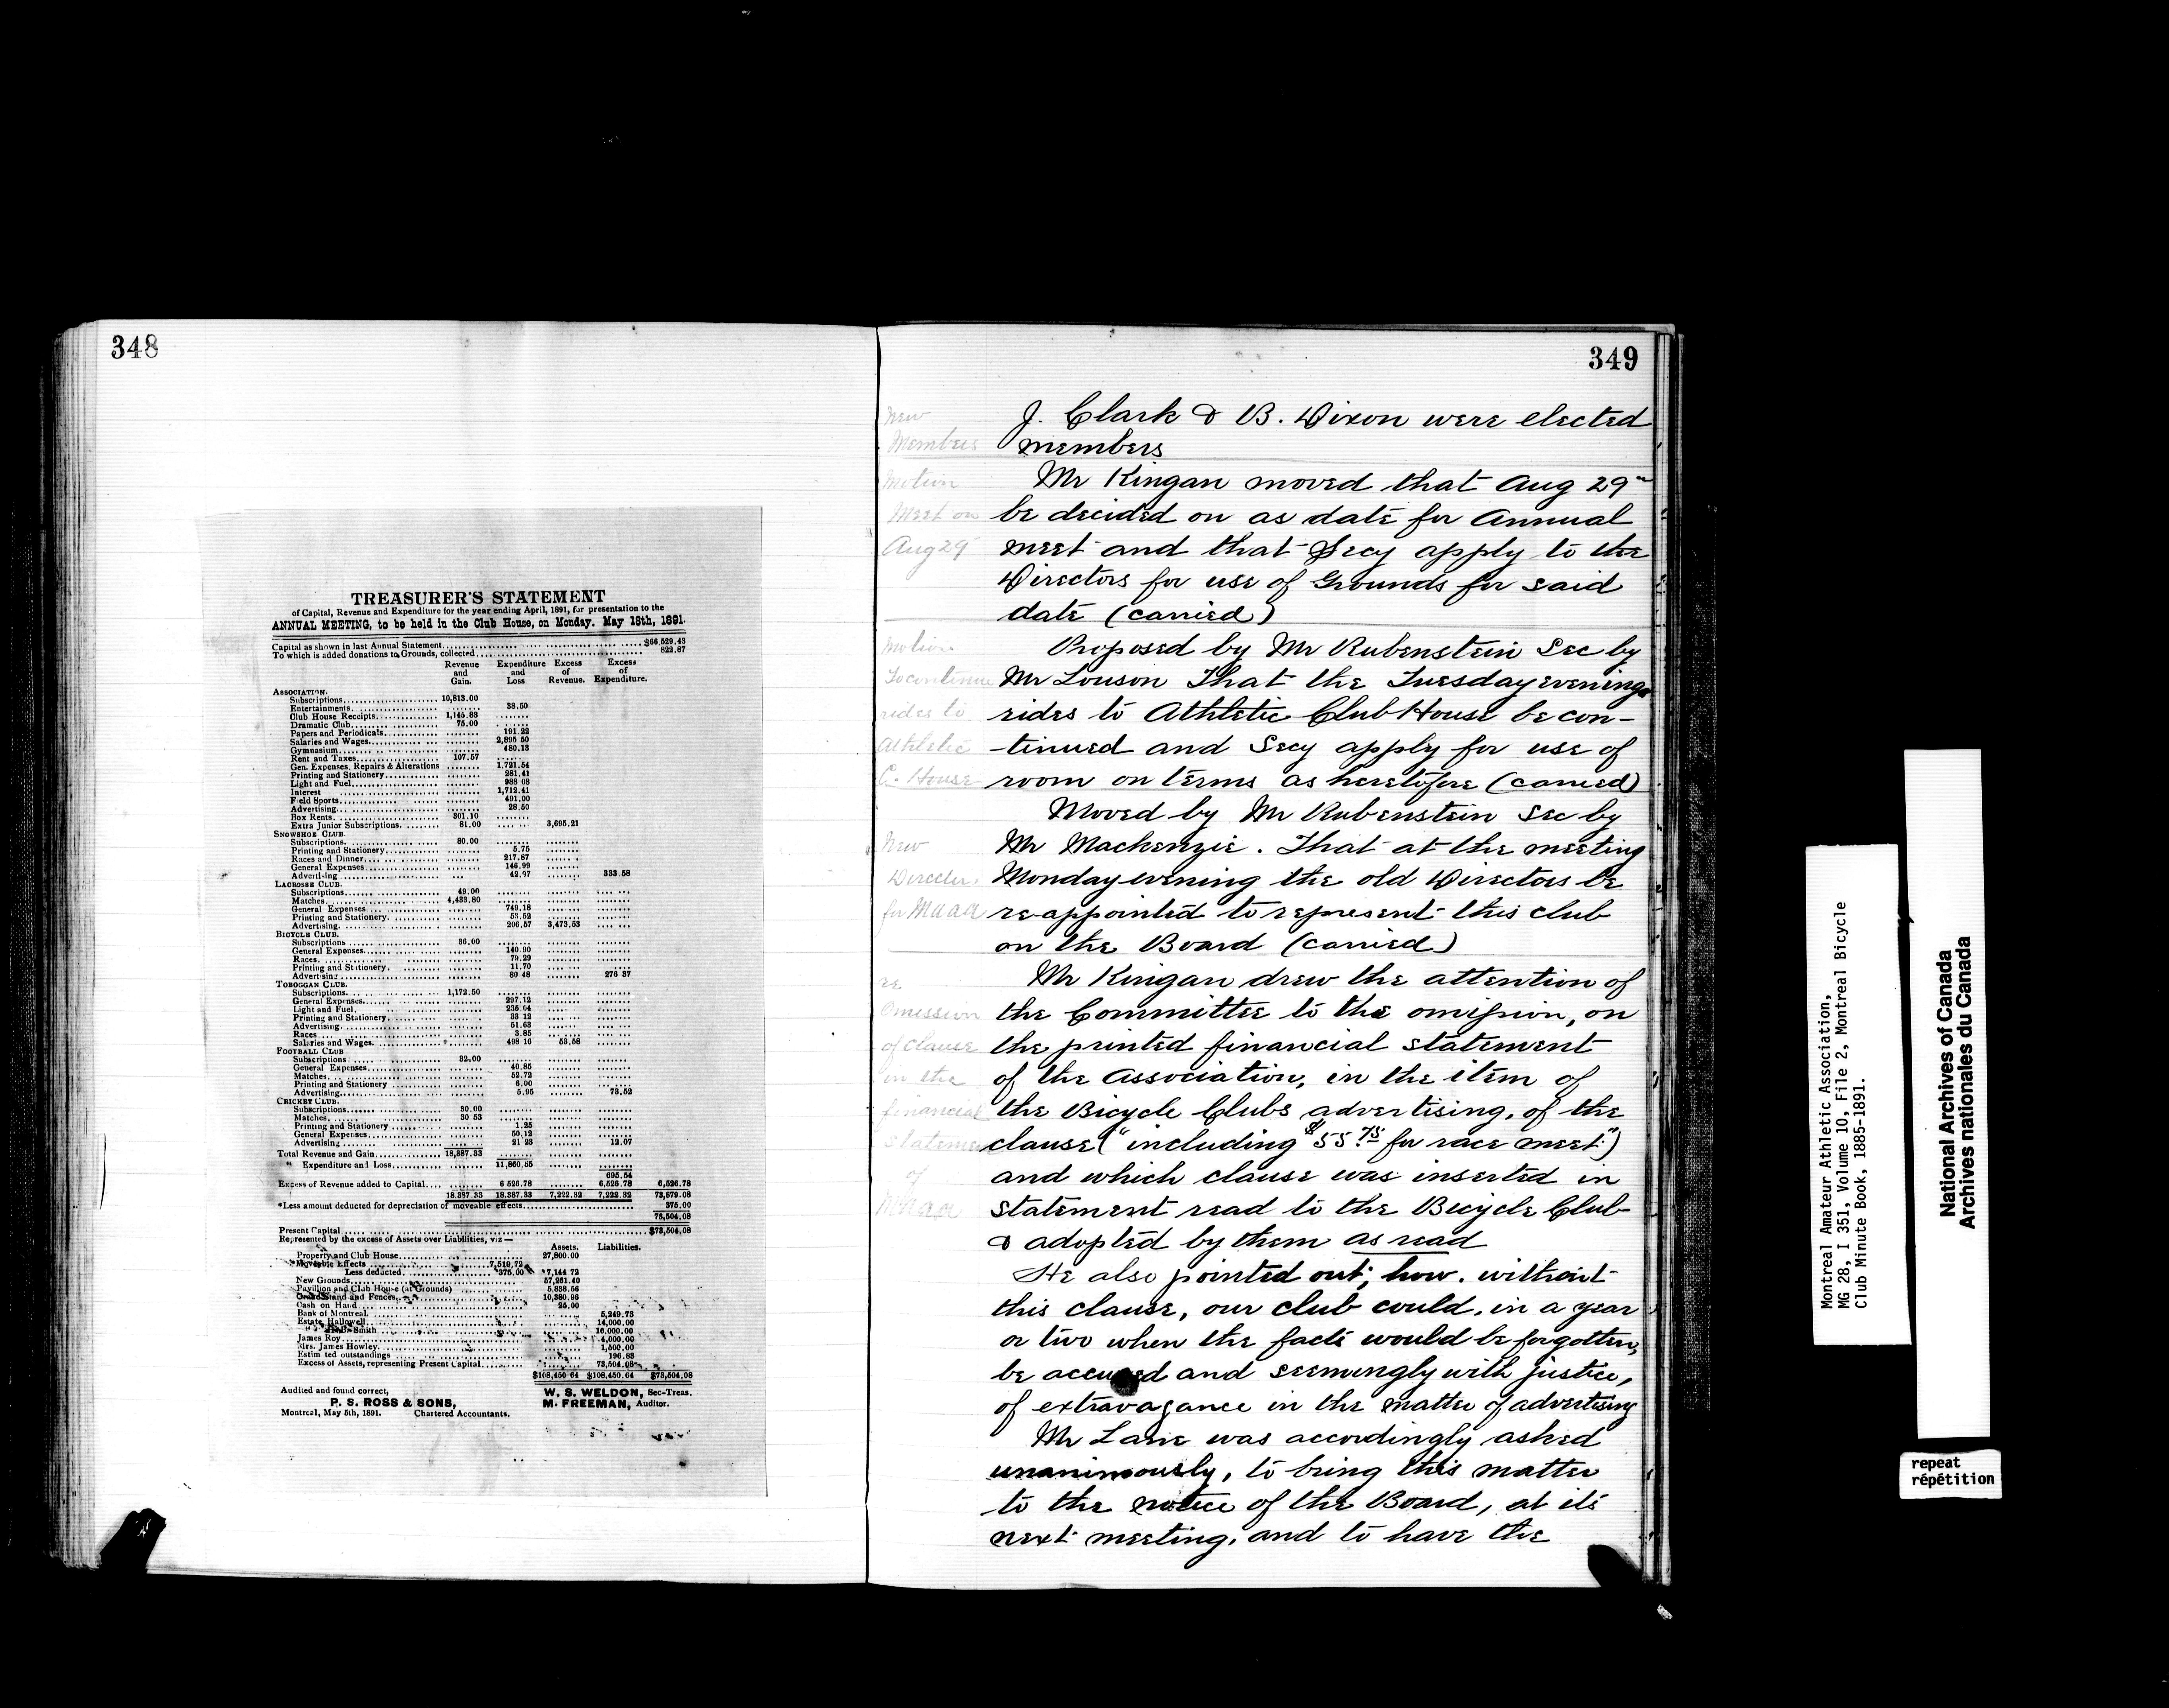 348
TREASURER'S STATEMENT
of Capital, Revenue and Expenditure for the year ending April, 1891, for presentation to the
ANNUAL MEETING, to be held in the Club House, on Monday. May 18th, 1891.
Capital as shown in last Annual Statement.... $66,529.43
To which is added donations to Grounds, collected.... 822.87
Revenue and Gain. Expenditure and Loss Excess of Revenue. Excess of Expenditure.
ASSOCIATION.
Subscriptions.... 10,813.00
Entertainments.... 38.50
Club House Receipts.... 1,145.83
Dramatic Club.... 75.00
Papers and Periodicals.... 191.22
Salaries and Wages.... 2,895 50
Gymnasium.... 480.13
Rent and Taxes.... 107.57
Gen. Expenses, Repairs & Alterations .... 1,721.54
Printing and Stationery.... 281.41
Light and Fuel.... 988 08
Interest .... 1,712.41
Field Sports.... 491.00
Advertising.... 28.50
Box Rents.... 301.10
Extra Junior Subscriptions. .... 81.00 .... 3,695.21
SNOWSHOE CLUB.
Subscriptions.... 80.00
Printing and Stationery.... 5.75
Races and Dinner.... 217.87
General Expenses.... 146.99
Advertising .... 42.97 .... 333.58
LACROSSE CLUB.
Subscriptions.... 49.00
Matches.... 4,433.80
General Expenses .... 749.18
Printing and Stationery.... 53.52
Advertising.... 206.57 3,473.53
BICYCLE CLUB.
Subscriptions .... 36.00
General Expenses.... 140.90
Races.... 79.29
Printing and Stationery. .... 11.70
Advertising .... 80 48 .... 276 37
TOBOGGAN CLUB.
Subscriptions.... 1,172.50
General Expenses.... 297.12
Light and Fuel.... 235 64
Printing and Stationery.... 33 12
Advertising.... 51.63
Races .... 3.85
Salaries and Wages. .... 498 16 53.58
FOOTBALL CLUB
Subscriptions .... 32.00
General Expenses.... 40.85
Matches.... 52.72
Printing and Stationery .... 6.00
Advertising.... 5.95 .... 73.52
CRICKET CLUB.
Subscriptions.... 30.00
Matches.... 30 53
Printing and Stationery .... 1.25
General Expenses.... 50.12
Advertising .... 21 23 .... 12.07
Total Revenue and Gain.... 18,387.33
" Expenditure and Loss.... 11,860.55
695.54
Excess of Revenue added to Capital.... 6 526.78 .... 6,526.78 6,526.78
18.387 33 18.387.33 7,222.32 7,222.32 73,879.08
*Less amount deducted for depreciation of moveable effects.... 375.00
73,504.08
Present Capital.... $73,504.08
Represented by the excess of Assets over Liabilities, viz—
Assets. Liabilities.
Property and Club House.... 27,800.00
*Moveable Effects .... 7,519 72
Less deducted.... *375.00 *7,144 72
New Grounds.... 57,261.40
Pavillion and Club House (at Grounds) .... 5,838.56
Grand Stand and Fences.... 10,380.96
Cash on Hand.... 25.00
Bank of Montreal.... 5,249.73
Estate Hallowell.... 14,000.00
Smith .... 10,000.00
James Roy.... 4,000.00
Mrs. James Howley.... 1,500.00
Estim ted outstandings .... 196.83
Excess of Assets, representing Present Capital.... 73,504.08
$108,450 64 $108,450.64 $73,504.08
Audited and found correct,
P. S. ROSS & SONS,
Montreal, May 5th, 1891. Chartered Accountants.
W. S. WELDON, Sec-Treas.
M. FREEMAN, Auditor.
349
New
Members
J. Clark & B. Dixon were elected
members
Motion
Meet on
Aug 29
Mr Kingan moved that Aug 29"
be decided on as date for Annual
meet and that Secy apply to the
Directors for use of Grounds for said
date (carried)
Motion
To continue
rides to
Athletic
C. House
Proposed by Mr Rubenstein Sec by
Mr Louson That the Tuesday evenings
rides to Athletic Club House be con-
-tinued and Secy apply for use of
room on terms as heretofore (carried)
New
Director
for MAAA
Moved by Mr Rubenstein Sec by
Mr Mackenzie. That at the meeting
Monday evening the old Directors be
re-appointed to represent this club
on the Board (carried)
re
Omission
of clause
in the
financial
Statement
of
MAAA
Mr Kingan drew the attention of
the Committee to the omission, on
the printed financial statement
of the Association, in the item of
the Bicycle Clubs advertising, of the
clause ("including $55.75 for race meet")
and which clause was inserted in
statement read to the Bicycle Club
& adopted by them as read
He also pointed out, how, without
this clause, our club could, in a year
or two when the facts would be forgotten,
be accused and seemingly with justice,
of extravagance in the matter of advertising
Mr Lane was accordingly asked
unanimously, to bring this matter
to the notice of the Board, at its
next meeting, and to have the
Montreal Amateur Athletic Association,
MG 28, I 351, Volume 10, File 2, Montreal Bicycle
Club Minute Book, 1885-1891.
National Archives of Canada
Archives nationales du Canada
repeat
répétition